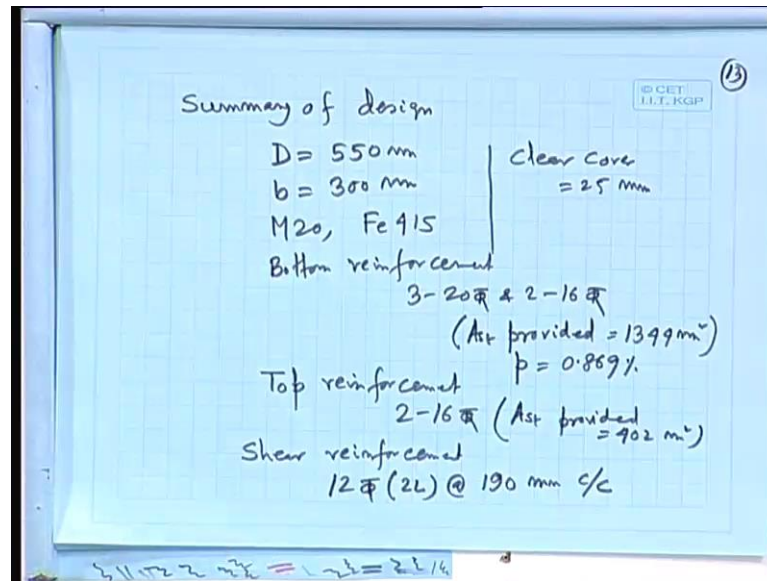 13
© CET
I.I.T. KGP
Summary of design
D = 550 mm
b = 300 mm
M20, Fe 415
Clear Cover
= 25 mm
Bottom reinforcement
3-20Φ & 2-16Φ
(Ast provided = 1344 mm²)
p = 0.869%
Top reinforcemet
2-16Φ (Ast provided
= 402 m²)
Shear reinforcement
12Φ (2L) @ 190 mm c/c